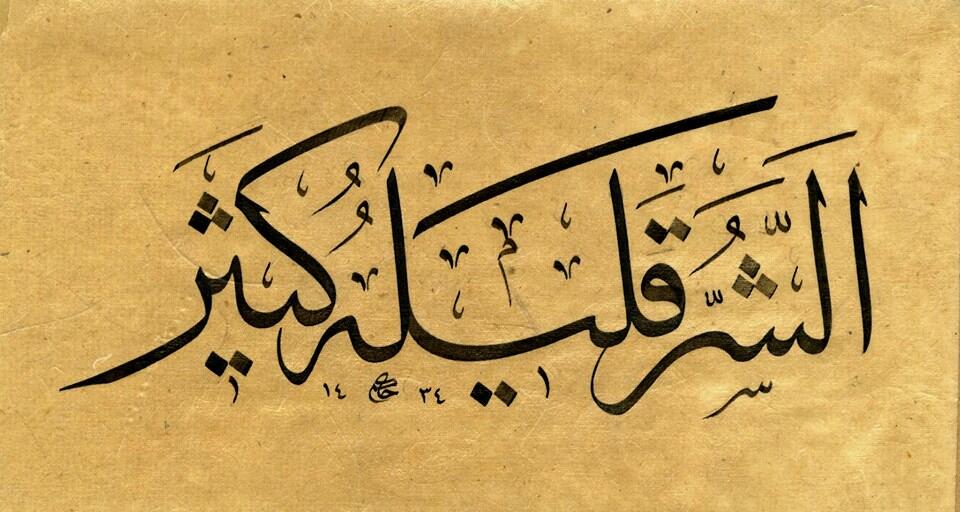 الشَّرُّ قَلِيلُهُ كَثِيرٌ
١٤ ٣٤